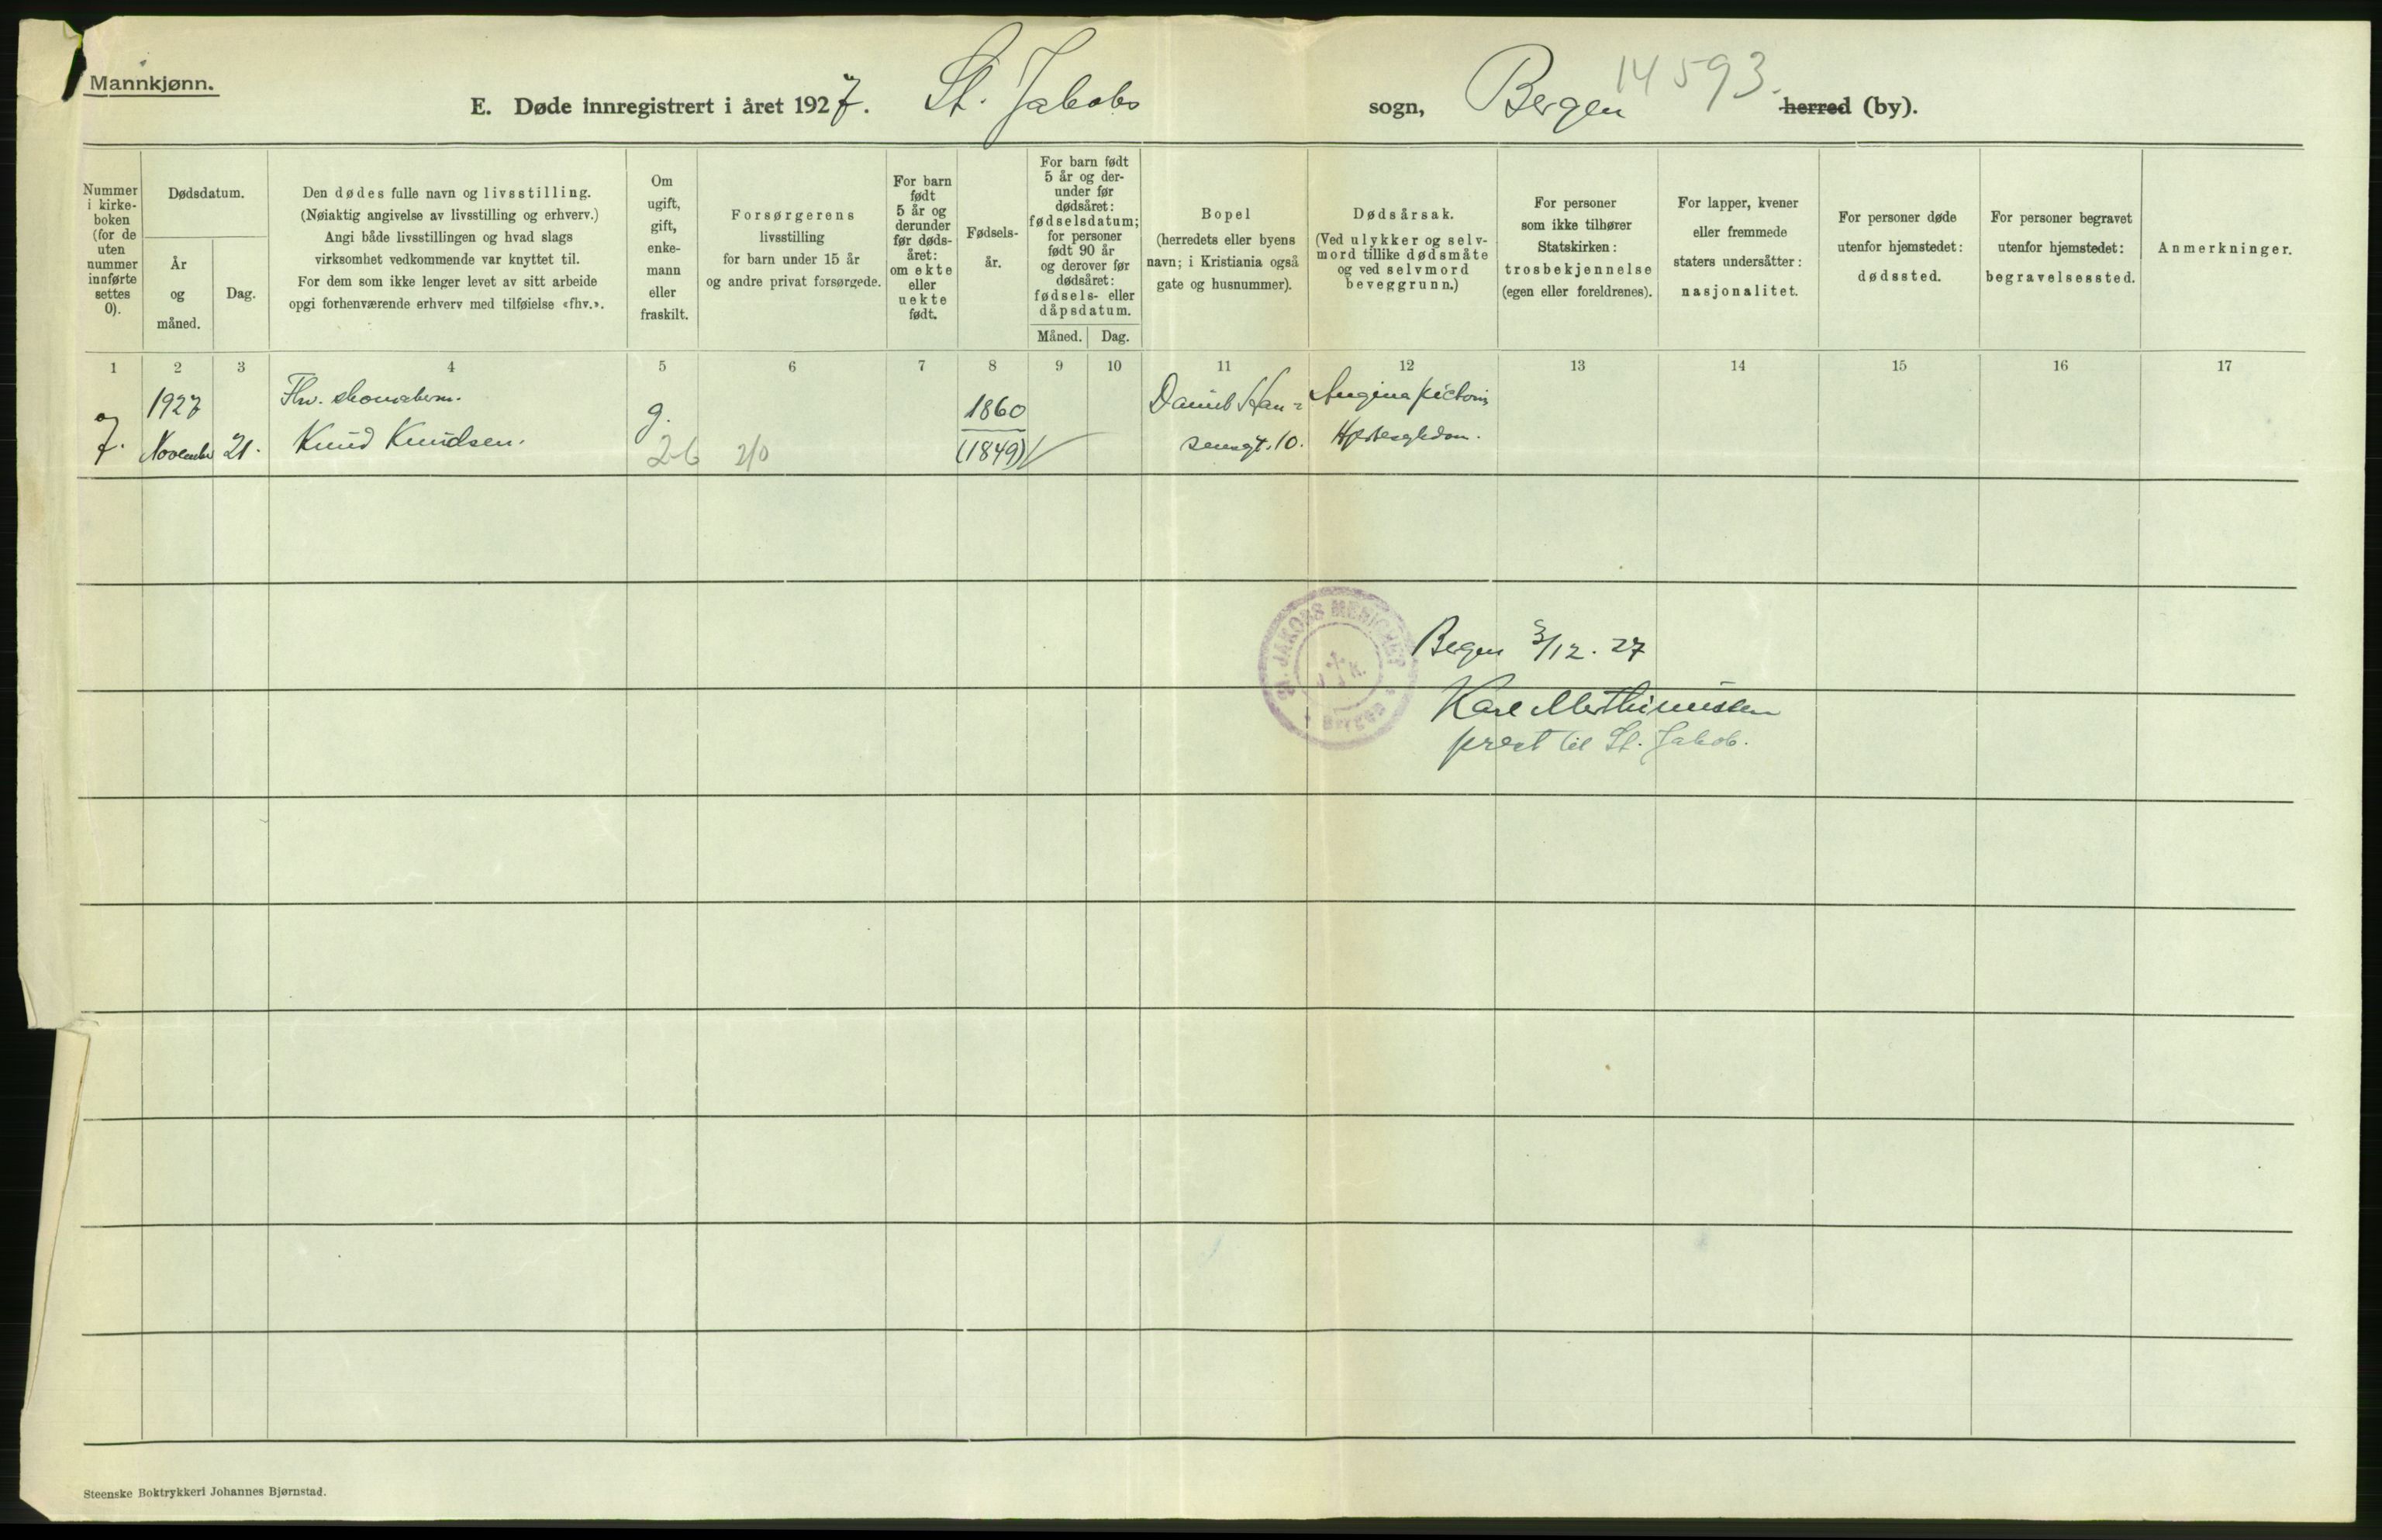 Mannkjønn.
14593.
E. Døde innregistrert i året 1927. St. Jakobs sogn, Bergen herred (by).
Nummer
i kirke-
boken
(for de
uten
nummer
innførte
settes
0).
Dødsdatum.
År
og
måned.
Dag.
Den dødes fulle navn og livsstilling.
(Nøiaktig angivelse av livsstilling og erhverv.)
Angi både livsstillingen og hvad slags
virksomhet vedkommende var knyttet til.
For dem som ikke lenger levet av sitt arbeide
opgi forhenværende erhverv med tilføielse «fhv.».
Om
ugift,
gift,
enke-
mann
eller
fraskilt.
Forsørgerens
livsstilling
for barn under 15 år
og andre privat forsørgede.
For barn
født
5 år og
derunder
før døds-
året:
om ekte
eller
uekte
født.
Fødsels-
år.
For barn født
5 år og der-
under før
dødsåret:
fødselsdatum;
for personer
født 90 år
og derover før
dødsåret:
fødsels- eller
dåpsdatum.
Måned. Dag.
Bopel
(herredets eller byens
navn; i Kristiania også
gate og husnummer).
Dødsårsak.
(Ved ulykker og selv-
mord tillike dødsmåte
og ved selvmord
beveggrunn.)
For personer
som ikke tilhører
Statskirken:
trosbekjennelse
(egen eller foreldrenes).
For lapper, kvener
eller fremmede
staters undersåtter:
nasjonalitet.
For personer døde
utenfor hjemstedet:
dødssted.
For personer begravet
utenfor hjemstedet:
begravelsessted.
Anmerkninger.
1 2 3 4 5 6 7 8 9 10 11 12 13 14 15 16 17
1927 Fhv. skomakerm. g. 1860 Daniel Han- Angina pectoris
7. November 21. Knud Knudsen. 26 2/0 (1849) sensgt. 10.
St. JAKOBS MENIGHET
Bergen
Bergen 3/12. 27
Karl Marthinussen
prest til St. Jakob.
Steenske Boktrykkeri Johannes Bjørnstad.